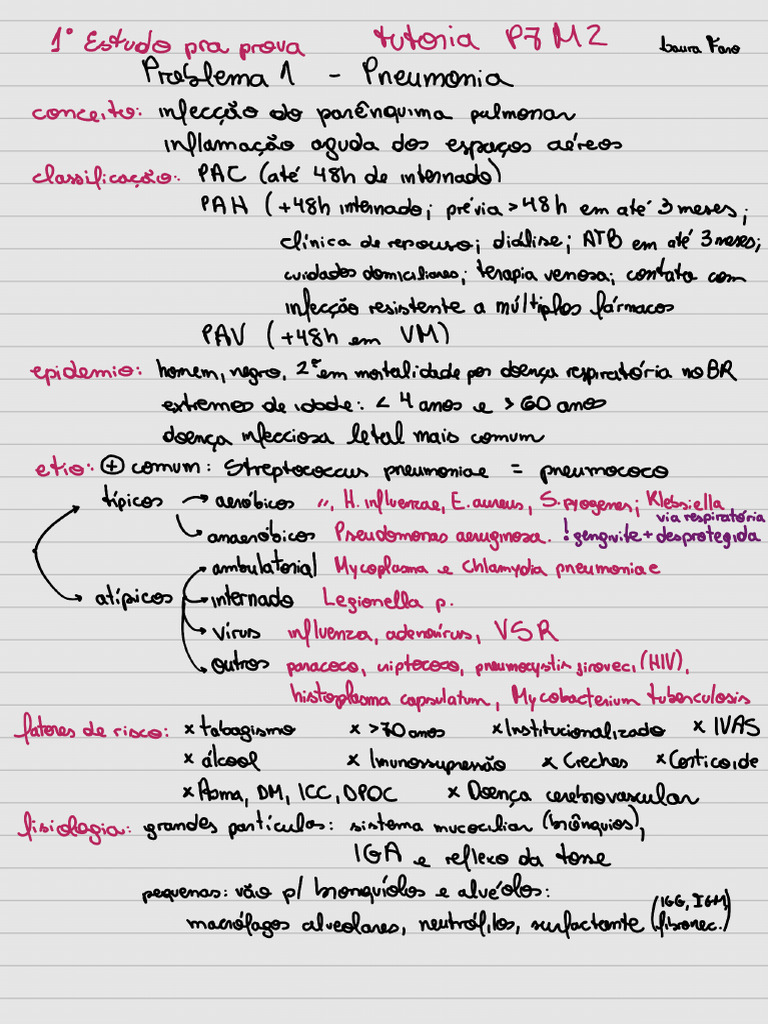 1° Estudo pra prova tutoria P7 M2 Laura Faro
Problema 1 - Pneumonia
conceito: infecção do parênquima pulmonar
inflamação aguda dos espaços aéreos
classificação: PAC (até 48h de internado)
PAH (+48h internado; prévia >48h em até 3 meses;
clínica de repouso; diálise; ATB em até 3 meses;
cuidados domiciliares; terapia venosa; contato com
infecção resistente a múltiplos fármacos
PAV (+48h em VM)
epidemio: homem, negro, 2ª em mortalidade por doença respiratória no BR
extremos de idade: < 4 anos e > 60 anos
doença infecciosa letal mais comum
etio: + comum: Streptococcus pneumoniae = pneumococo
típicos → aeróbicos ", H. influenzae, E. aureus, S. pyogenes; Klebsiella
anaeróbicos Pseudomonas aeruginosa. ! gengivite + via respiratória desprotegida
atípicos → ambulatorial Mycoplasma e Chlamydia pneumoniae
internado Legionella p.
vírus influenza, adenovírus, VSR
outros paracoco, criptococo, pneumocystis jiroveci (HIV),
histoplasma capsulatum, Mycobacterium tuberculosis
fatores de risco: x tabagismo x >70 anos x Institucionalizado x IVAS
x álcool x Imunossupressão x Creches x Corticoide
x Asma, DM, ICC, DPOC x Doença cerebrovascular
fisiologia: grandes partículas: sistema mucociliar (brônquios),
IGA e reflexo da tosse
pequenas: vão p/ bronquíolos e alvéolos:
macrófagos alveolares, neutrófilos, surfactante (IGG, IGM, fibronec.)